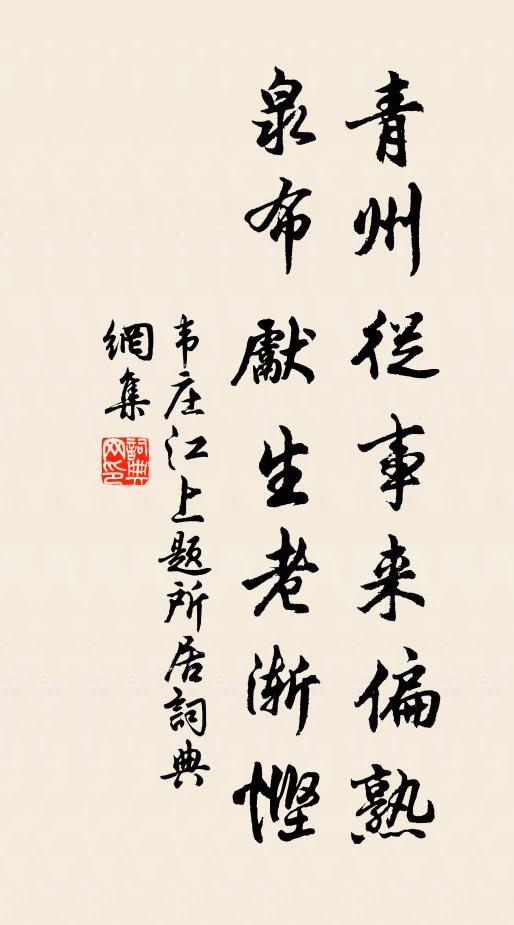 青州從事来偏熟
泉布獻生老漸慳
韦庄江上题所居詞典
網集
詞典網印